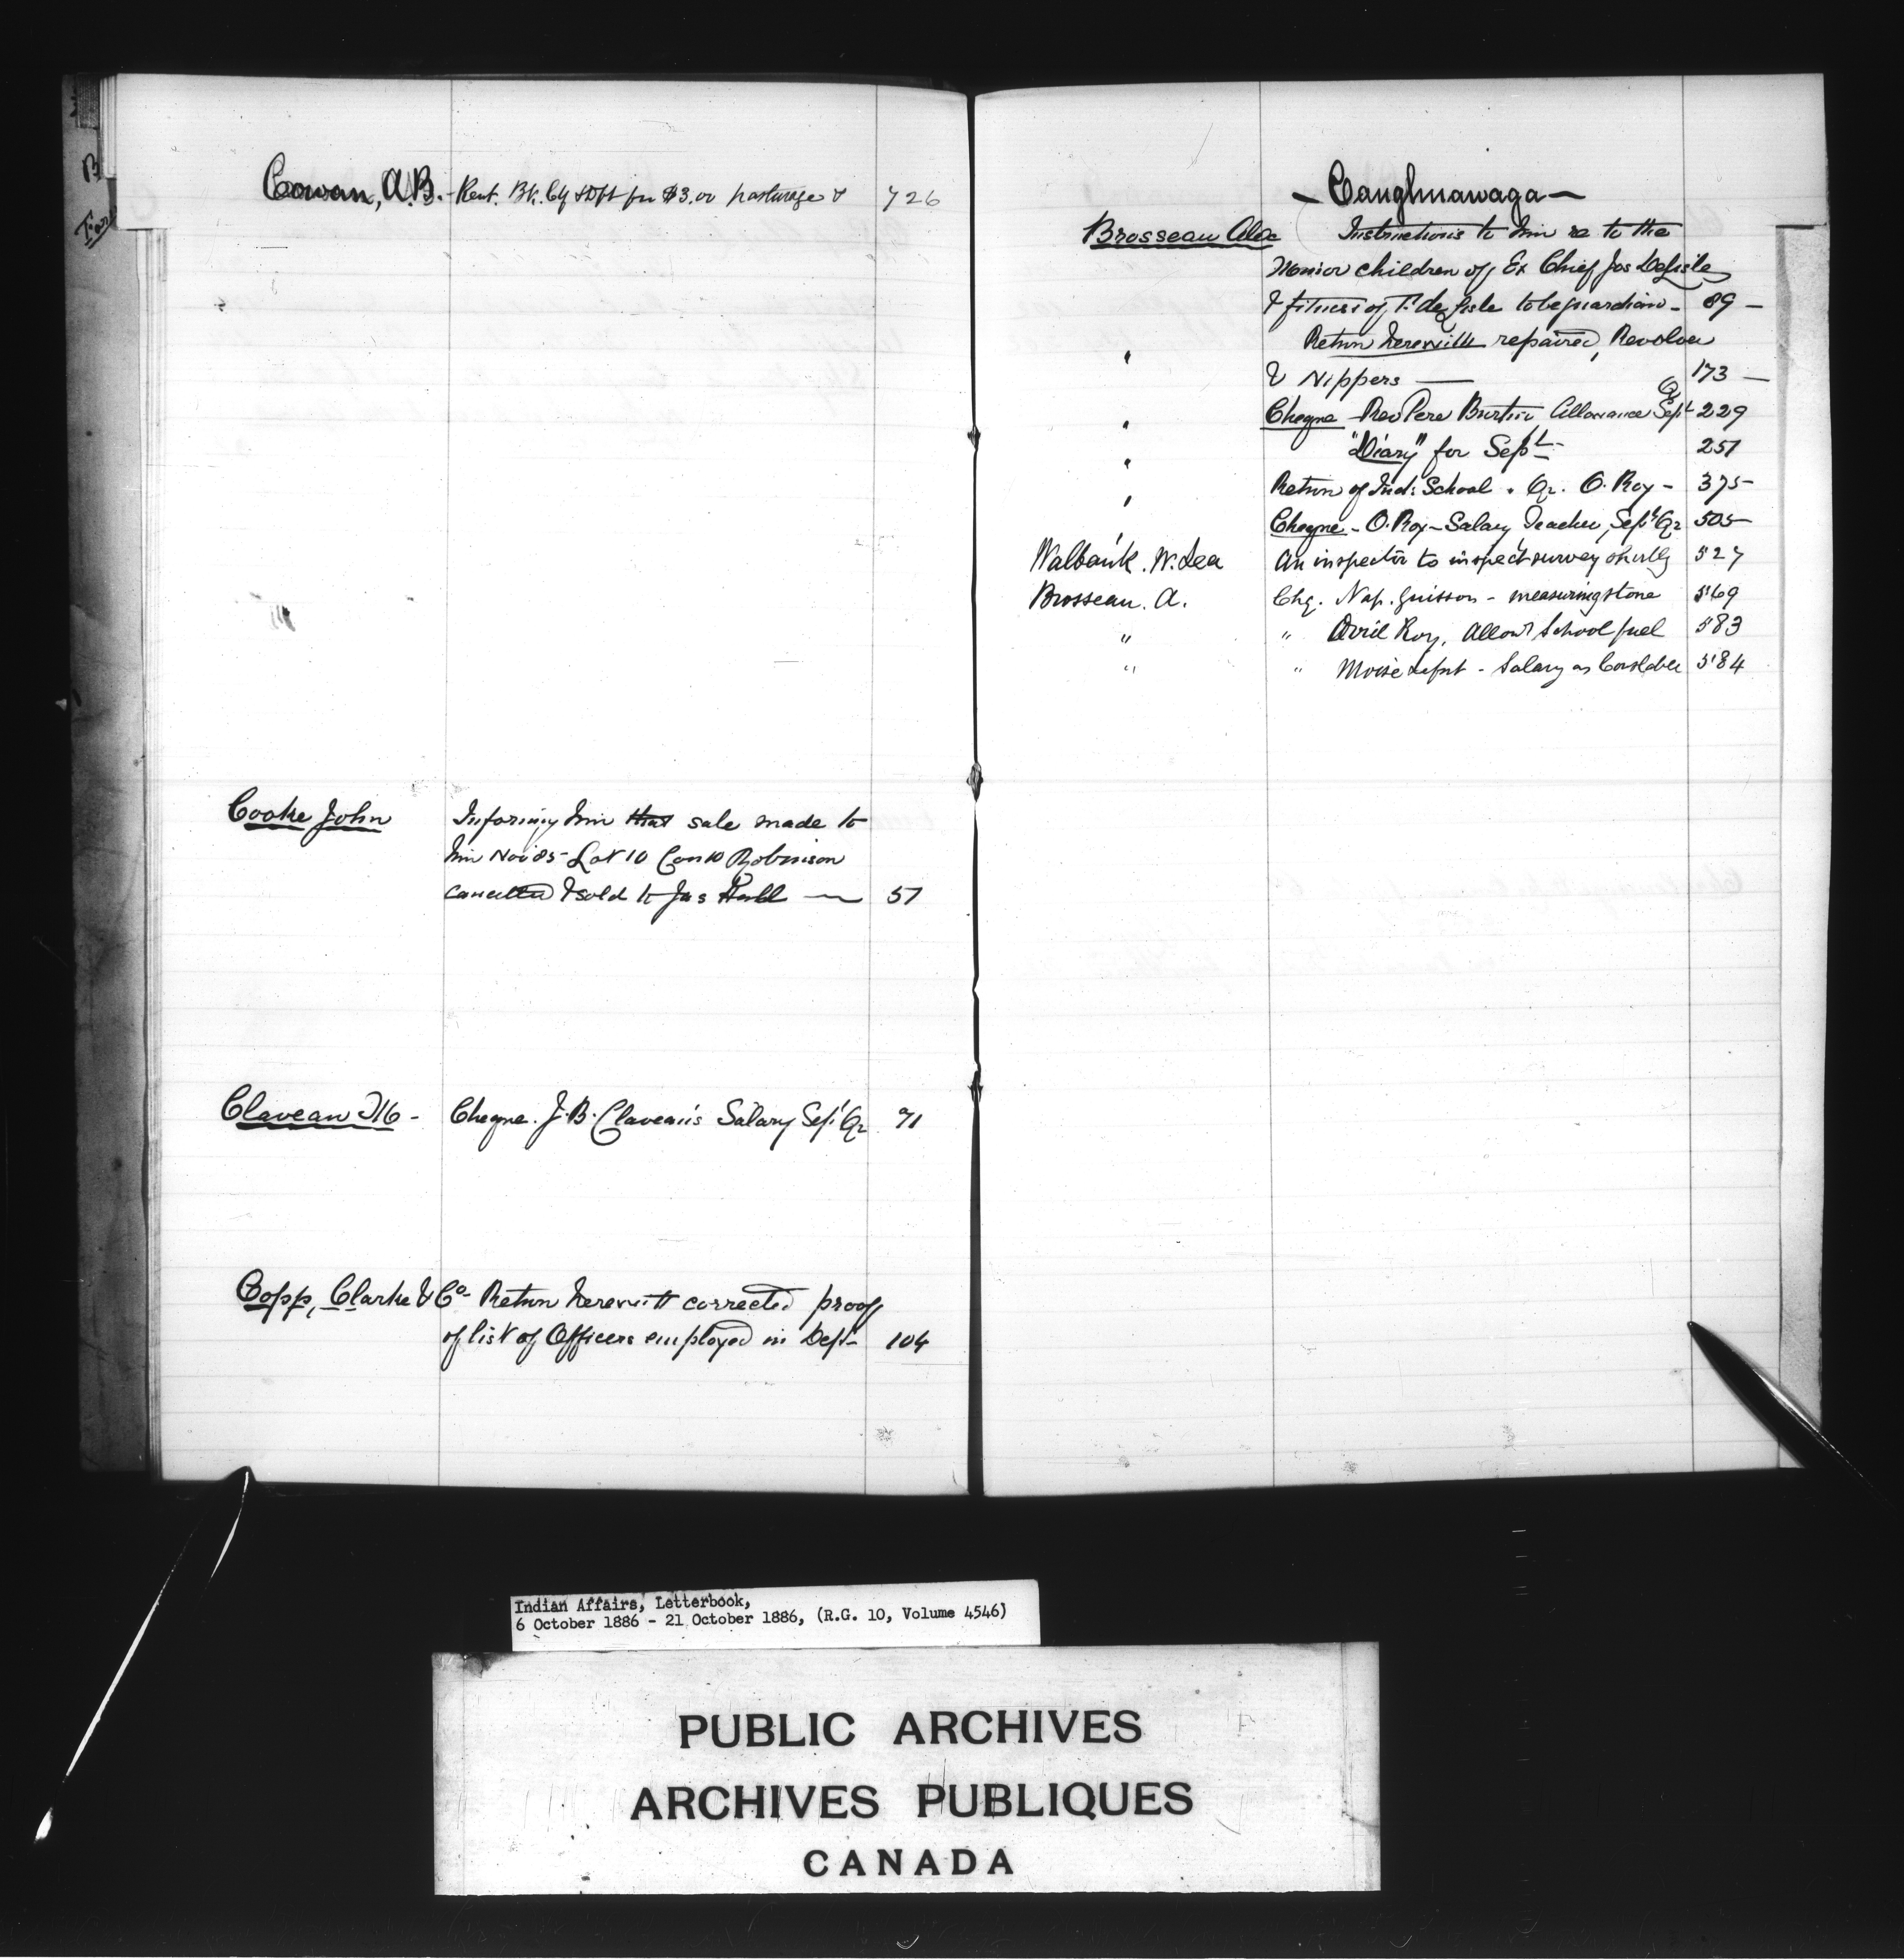 Cowan, A.B. - Ret. Bk. Cy & Dft for $3.00 pasturage & 726
Cooke John Informing him that sale made to
him Nov '85 - Lot 10 Con 10 Robinson
cancelled & sold to Jas Hall — 51
Claveau - Cheque. J.B. Claveau's Salary Sept Qr 91
Copp, Clarke & Co - Return herewith corrected proof
of list of Officers employed in Dept - 104
— Caughnawaga —
Brosseau Alex Instructions to him re to the
Minor children of Ex Chief Jos Delisle
& fitness of T. de Lisle to be guardian - 89 -
" Return herewith repaired, Revolver
& Nippers — 173 —
" Cheque - Rev Pere Burtin Allowance Sept Qr 229
" "Diary" for Sept - 251
" Return of Ind: School. Qr. O. Roy - 375 -
Cheque - O. Roy - Salary Teacher, Sept Qr 505
Walbank. W. Lea An inspector to inspect survey shortly 527
Brosseau. A. Chq. Nap. Guisson - measuring stone 569
" " Ovril Roy, Allow School fuel 583
" " Moise - Salary as Constable 584
B
Indian Affairs, Letterbook,
6 October 1886 - 21 October 1886, (R.G. 10, Volume 4546)
PUBLIC ARCHIVES
ARCHIVES PUBLIQUES
CANADA